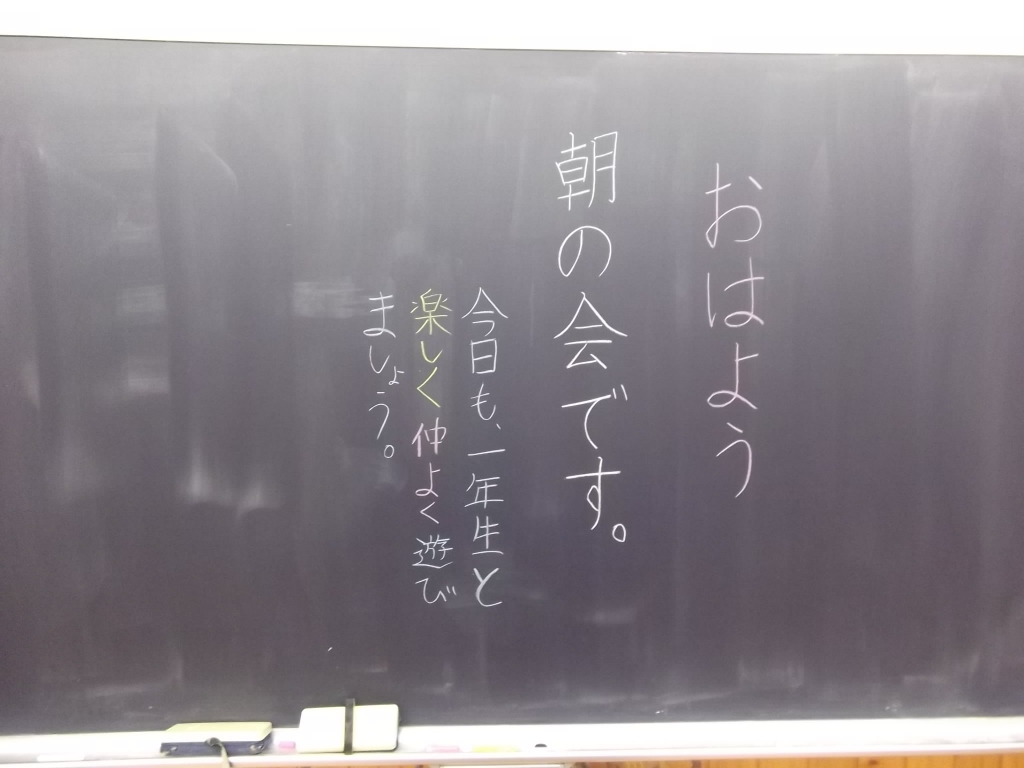 おはよう
朝の会です。
今日も、一年生と
楽しく仲よく遊び
ましょう。